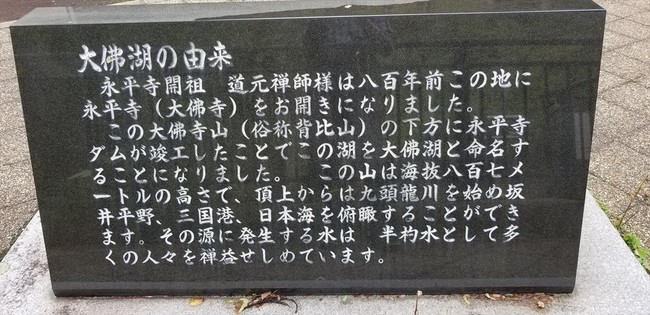 大佛湖の由来
永平寺開祖 道元禅師様は八百年前この地に
永平寺（大佛寺）をお開きになりました。
この大佛寺山（俗称背比山）の下方に永平寺
ダムが竣工したことでこの湖を大佛湖と命名す
ることになりました。 この山は海抜八百七メ
ートルの高さで、頂上からは九頭龍川を始め坂
井平野、三国港、日本海を俯瞰することができ
ます。その源に発生する水は 半杓水として多
くの人々を裨益せしめています。